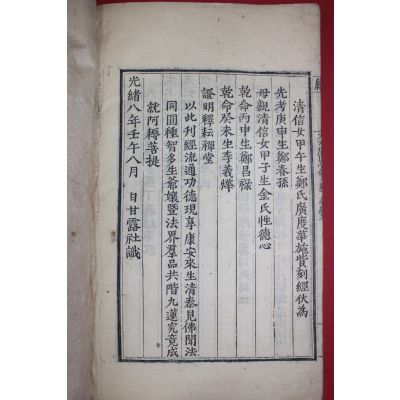 清信女甲午生鄭氏廣度華施貲刻經伏為
先考庚申生鄭春孫
母親清信女甲子生金氏性德心
乾命丙申生鄭昌祿
乾命癸未生李義燁
證明釋耘禪堂
以此刊經流通功德現享康安來生清泰見佛聞法
同圓種智多生爺孃曁法界羣品共階九蓮究竟成
就阿耨菩提
光緒八年壬午八月 日甘露社識